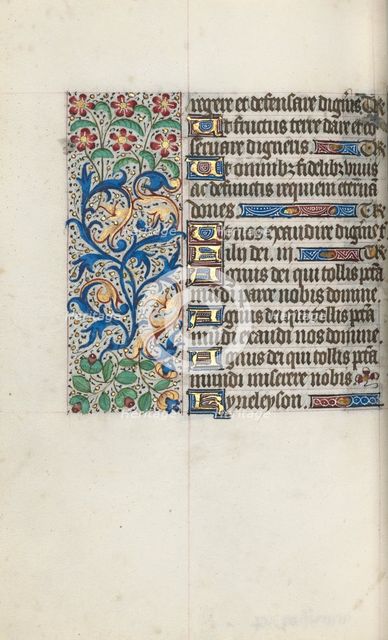 regere et defensare digneris Te R
Ut fructus terre dare et co
servare digneris
Ut omnibz fidelibz vivis
ac defunctis requiem eterna
dones Te R
Ut nos exaudire digneris t
Fili dei . iii
Agnus dei qui tollis pcta
mundi parce nobis domine
Agnus dei qui tollis pcta
mundi exaudi nos domine
Agnus dei qui tollis pcta
mundi miserere nobis
Kyrieleyson .
heritage heritage